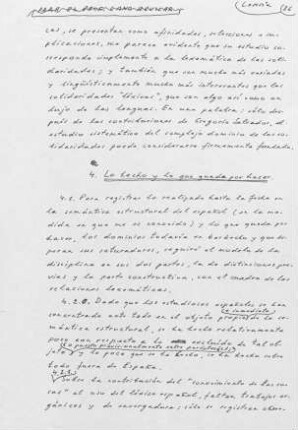 cas, se presentan como afinidades, selecciones o im-
plicaciones, me parece evidente que su estudio co-
rresponde simplemente a la lexemática de las soli-
daridades; y también que son mucho más variadas
y lingüísticamente mucho más interesantes que las
solidaridades "léxicas", que son algo así como un
lujo de las lenguas. En una palabra: sólo des-
pués de las contribuciones de Gregorio Salvador, el
estudio sistemático del complejo dominio de las so-
lidaridades puede considerarse firmemente fundado.
4. Lo hecho y lo que queda por hacer.
4.1. Para registrar lo realizado hasta la fecha en
la semántica estructural del español (en la me-
dida en que me es conocido) y lo que queda por
hacer, los dominios todavía en barbecho y que es-
peran sus roturadores, seguiré el modelo de la
disciplina en sus dos partes, la de distinciones pre-
vias y la parte constructiva, con el cuadro de las
relaciones lexemáticas.
4.2.0. Dado que los estudiosos españoles se han
(e inmediato)
concentrado ante todo en el objeto propio de la se-
mántica estructural, se ha hecho relativamente
poco con respecto a lo excluido de tal ob-
jeto y lo poco que se ha hecho, se ha hecho sobre
todo fuera de España.
4.2.1.
Sobre la contribución del "conocimiento de las co-
sas" al uso del léxico español, faltan trabajos or-
gánicos y de envergadura; sólo se registran obser-